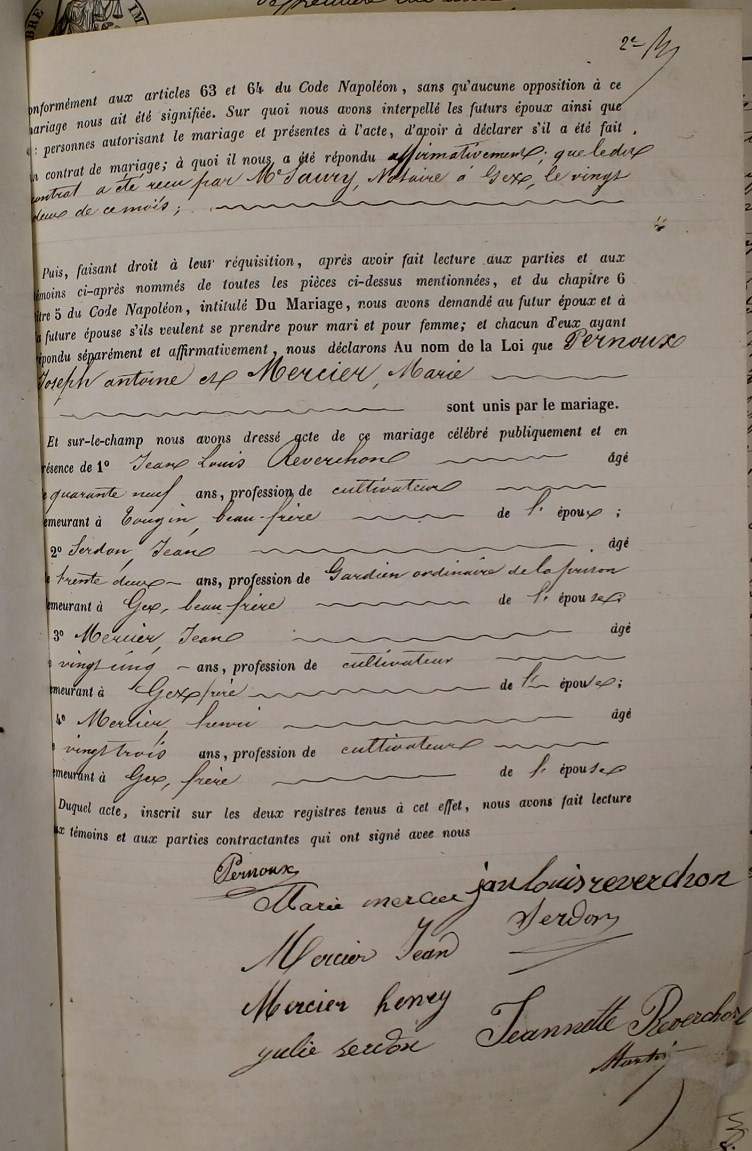 2e
onformément aux articles 63 et 64 du Code Napoléon, sans qu'aucune opposition à ce
mariage nous ait été signifiée. Sur quoi nous avons interpellé les futurs époux ainsi que
: personnes autorisant le mariage et présentes à l'acte, d'avoir à déclarer s'il a été fait
n contrat de mariage; à quoi il nous a été répondu affirmativement; que ledit
contrat a été recu par Me Saury, Notaire à Gex, le vingt
deux de ce mois;
Puis, faisant droit à leur réquisition, après avoir fait lecture aux parties et aux
émoins ci-après nommés de toutes les pièces ci-dessus mentionnées, et du chapitre 6
itre 5 du Code Napoléon, intitulé Du Mariage, nous avons demandé au futur époux et à
a future épouse s'ils veulent se prendre pour mari et pour femme; et chacun d'eux ayant
épondu séparément et affirmativement, nous déclarons Au nom de la Loi que Pernoux
Joseph antoine et Mercier, Marie
sont unis par le mariage.
Et sur-le-champ nous avons dressé acte de ce mariage célébré publiquement et en
résence de 1° Jean Louis Reverchon âgé
e quarante neuf ans, profession de cultivateur
emeurant à Tougin, beau-frère de l' époux;
2° Serdon, Jean âgé
e trente deux ans, profession de Gardien ordinaire de la prison
emeurant à Gex, beau frère de l' épouse;
3° Mercier, Jean âgé
e vingt cinq ans, profession de cultivateur
emeurant à Gex frère de l' épouse;
4° Mercier, henri âgé
e vingt trois ans, profession de cultivateur
emeurant à Gex, frère de l' épouse
Duquel acte, inscrit sur les deux registres tenus à cet effet, nous avons fait lecture
ux témoins et aux parties contractantes qui ont signé avec nous
Pernoux
Marie mercier jan louis reverchon
Serdon
Mercier Jean
Mercier henry
julie serdon Jeannette Reverchon
Martin